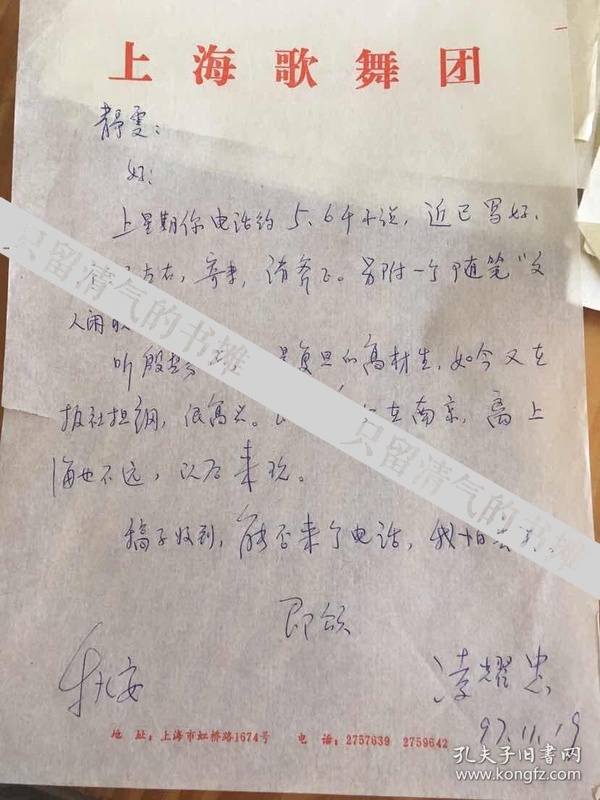 上海歌舞团
静雯：
好！
上星期你电话约5、6千小说，近已写好，
左右，寄来，请斧正。另附一个随笔"文
人闲
听殷 是复旦的高材生，如今又在
报社担纲，很高兴。 在南京，离上
海也不远，以后来玩。
稿子收到，能否来个电话，我怕丢
即颂
秋安
凌耀忠
97.11.19
地 址：上海市虹桥路1674号 电 话：2757639 2759642
只留清气的书摊
只留清气的书摊
孔夫子旧书网
www.kongfz.com